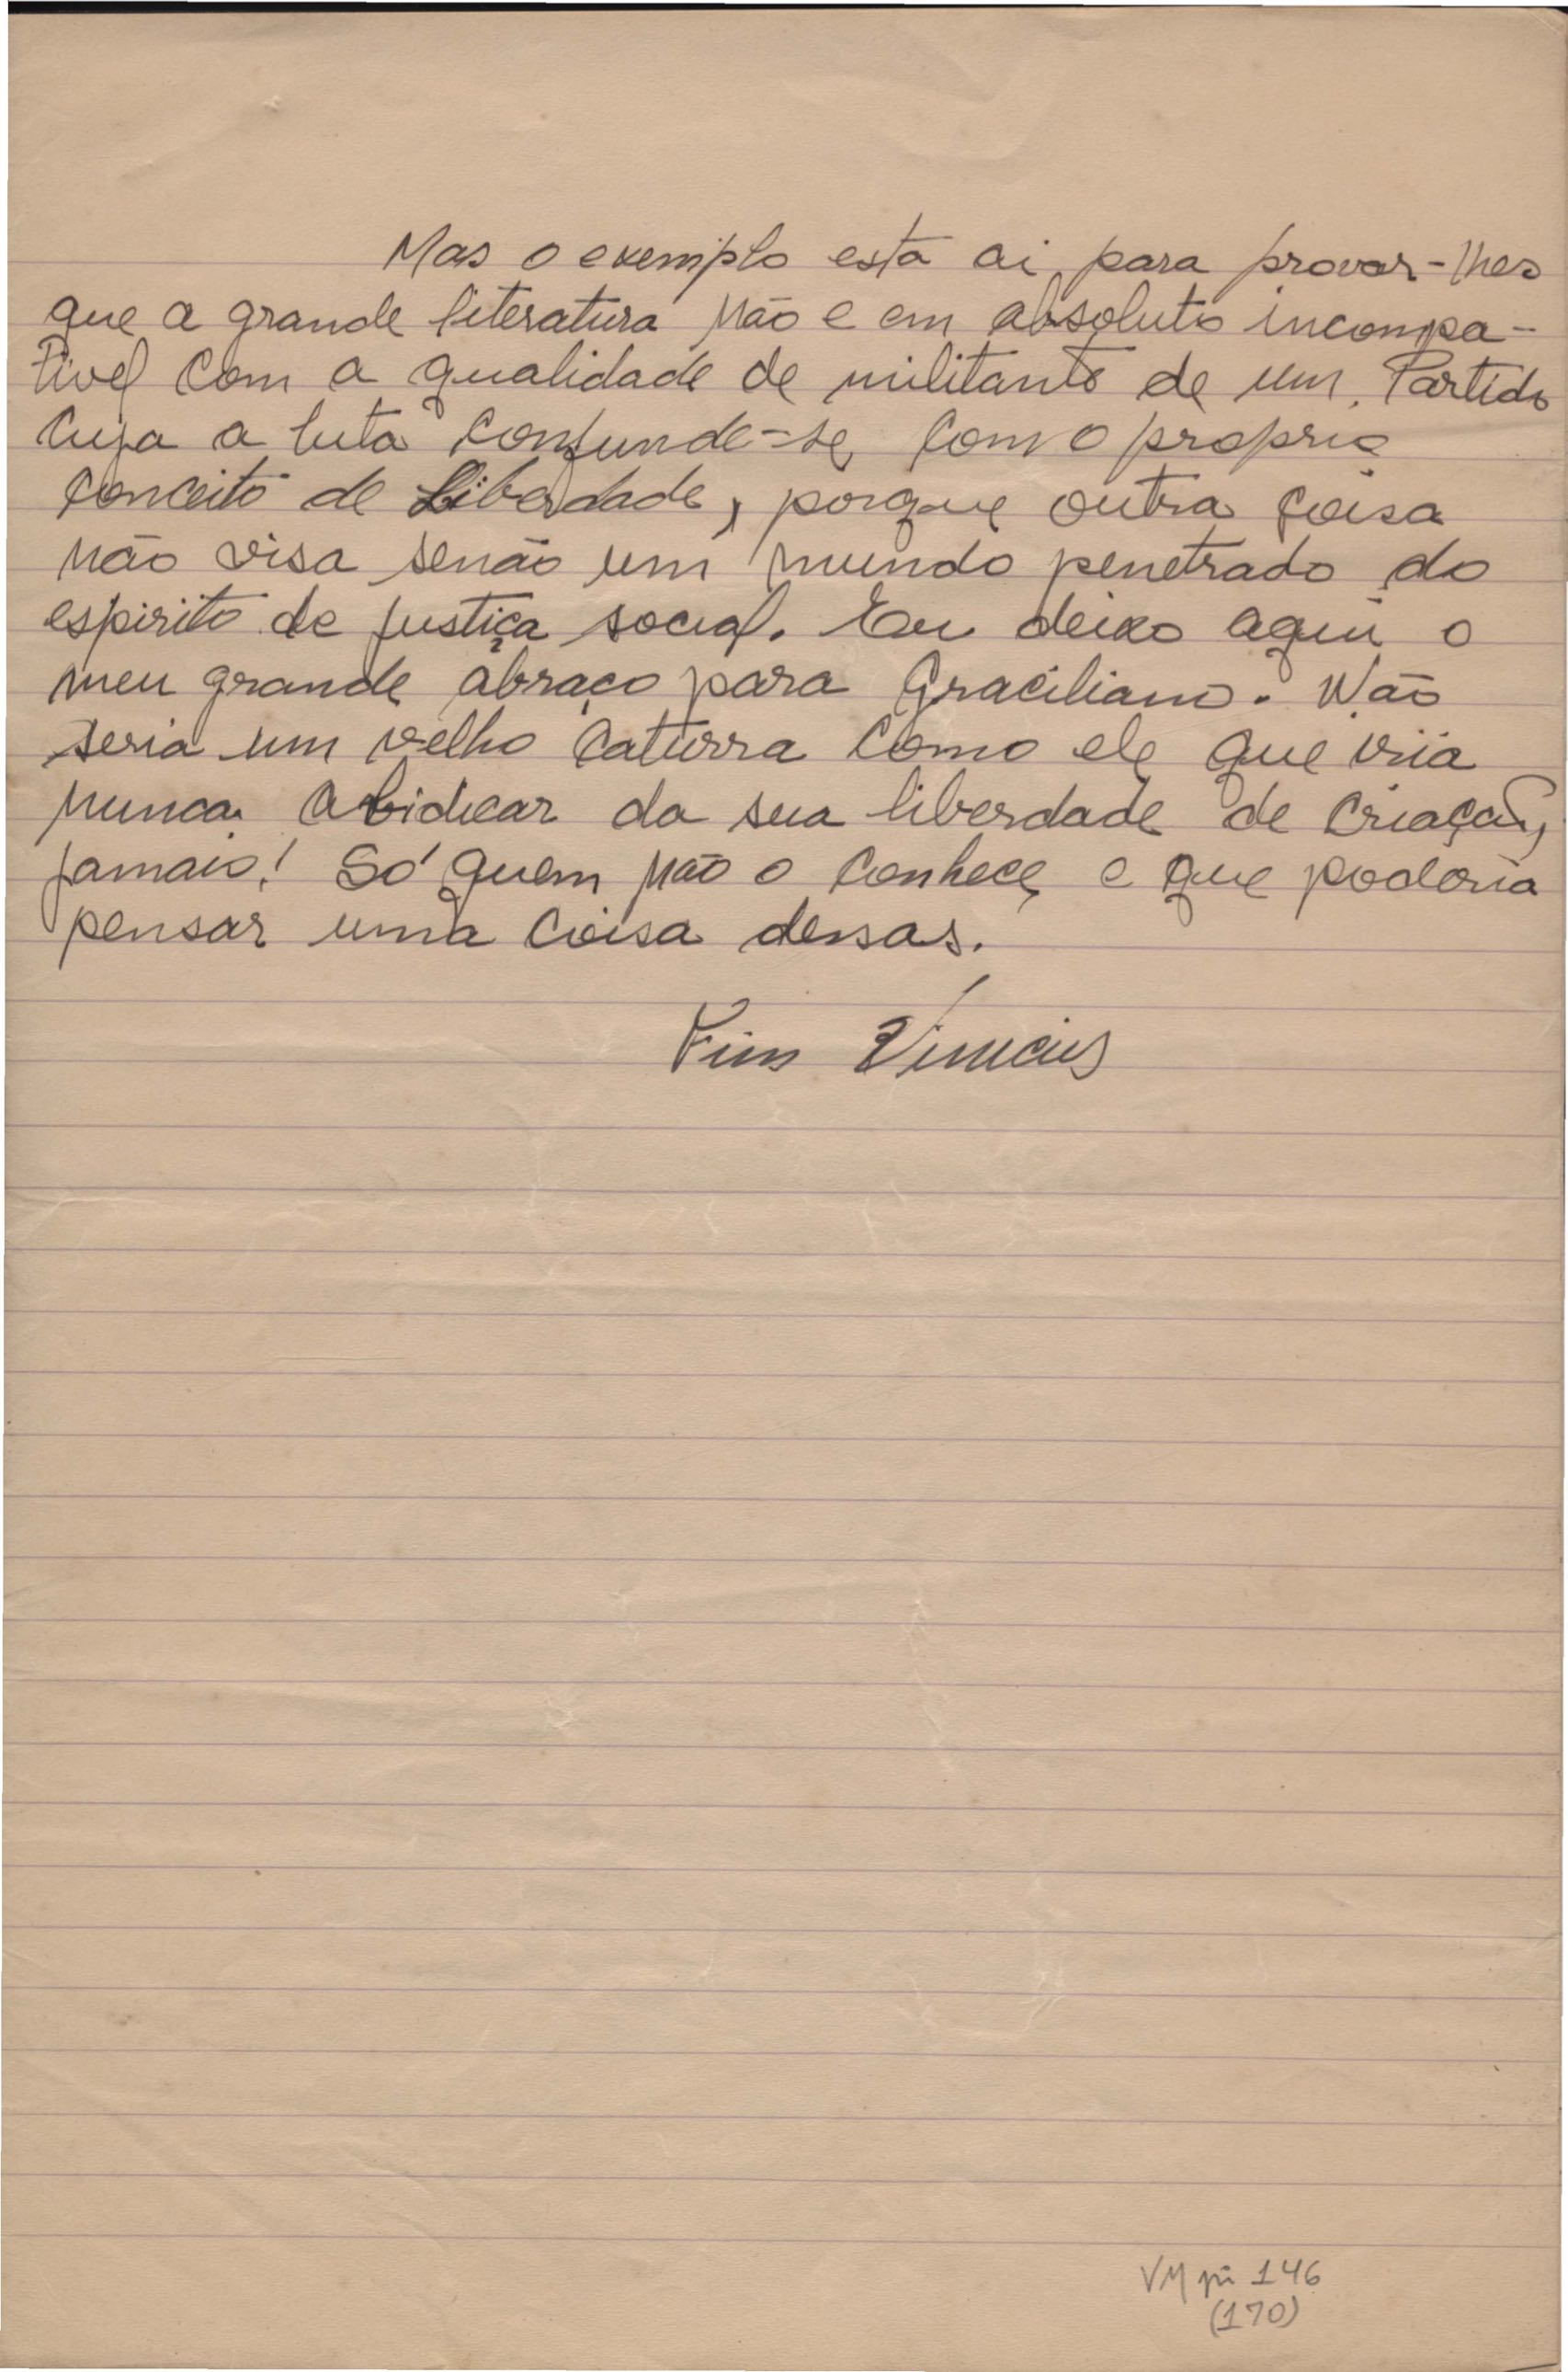 Mas o exemplo está ai para provar-lhes
que a grande literatura não e em absoluto incompa-
tivel com a qualidade de militante de um Partido
cuja a luta confunde-se com o proprio
conceito de Liberdade, porque outra coisa
não visa senão um mundo penetrado do
espirito de justiça social. Eu deixo aqui o
meu grande abraço para Graciliano. Não
seria um velho caturra como ele que iria
nunca abidicar da sua liberdade de criação,
jamais! Só quem não o conhece e que poderia
pensar uma coisa dessas.
Fim Vinicius
VM pi 146
(170)